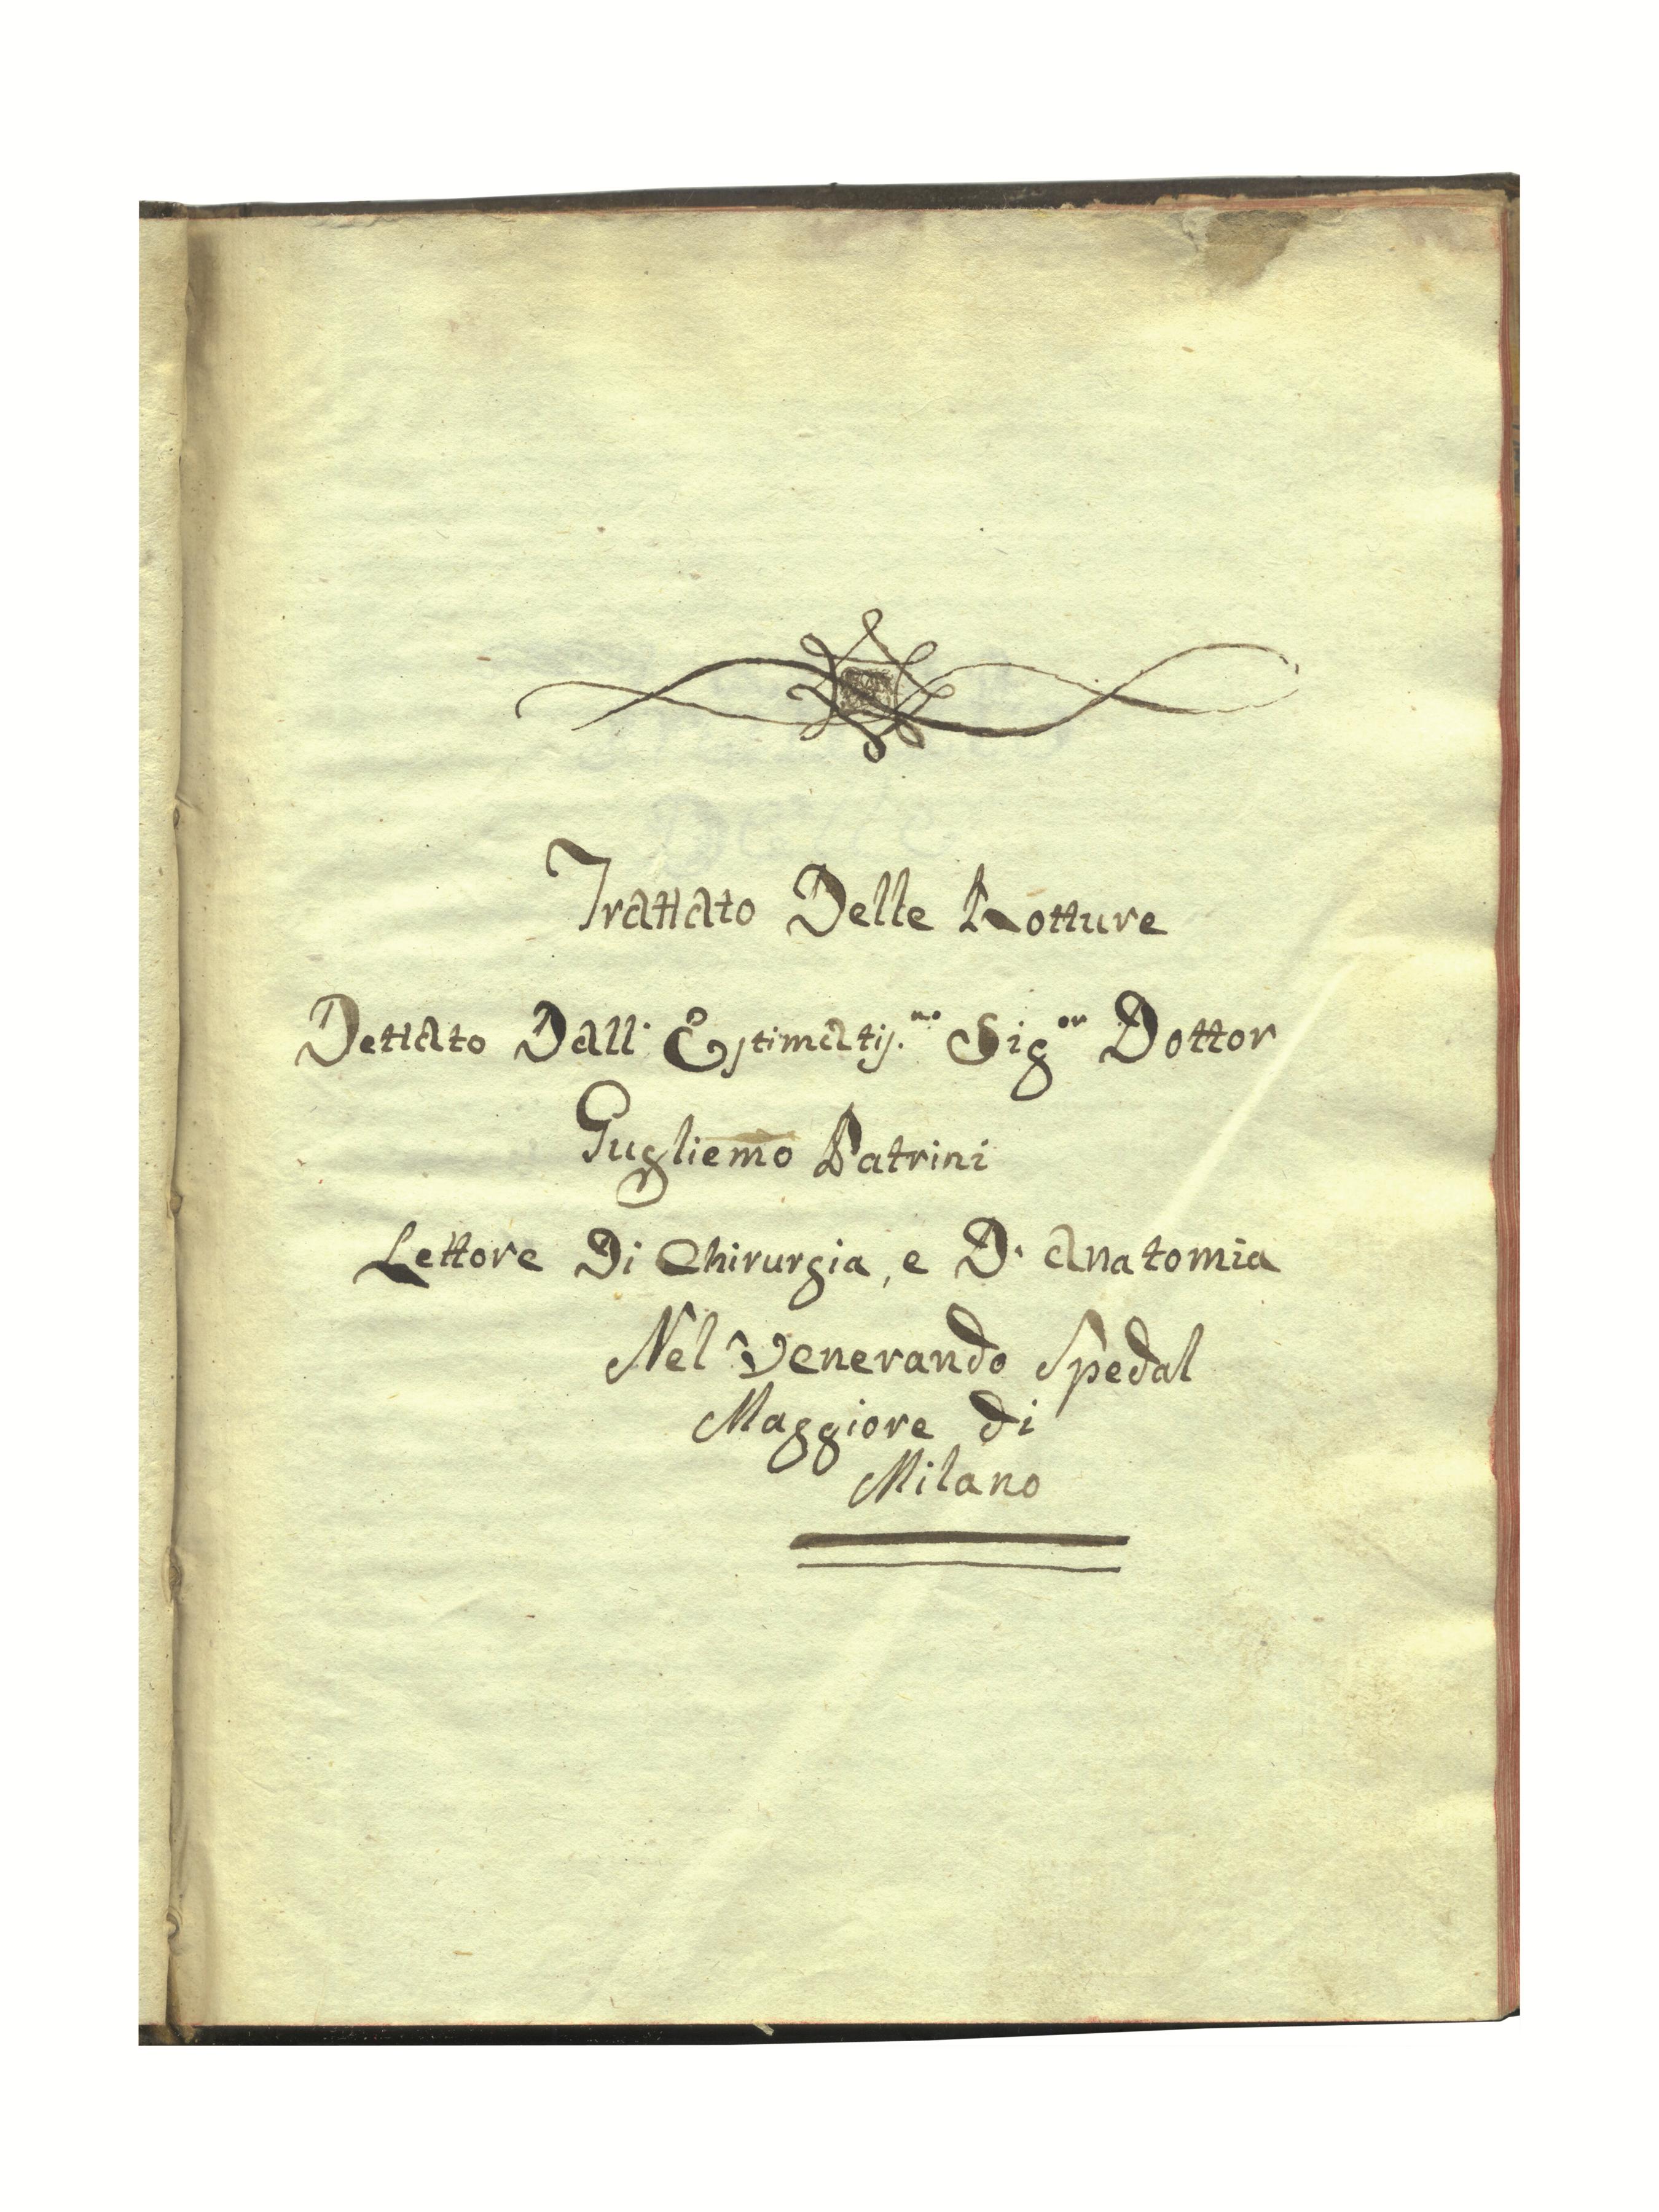 Trattato Delle Rotture
Dettato Dall' Estimatis.mo Sig.or Dottor
Gugliemo Patrini
Lettore Di Chirurgia, e D' Anatomia
Nel Venerando Spedal
Maggiore di
Milano